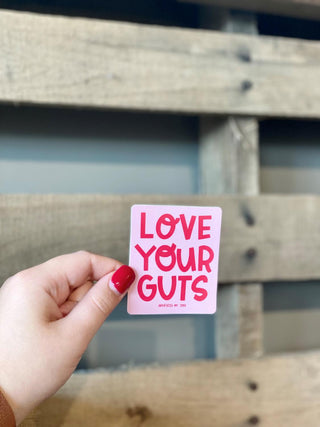 LOVE
YOUR
GUTS